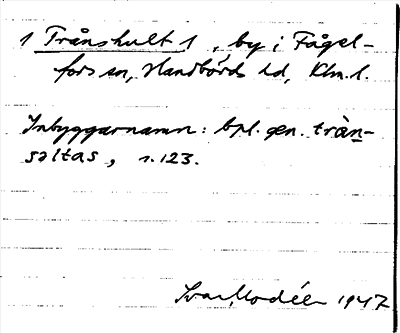 1 Trånshult 1, by i Fågel-
fors sn, Handbörds hd, Klm. l.
Inbyggarnamn: bpl. gen. tràn-
saltas, s. 123.
Ivar Modéer 1947